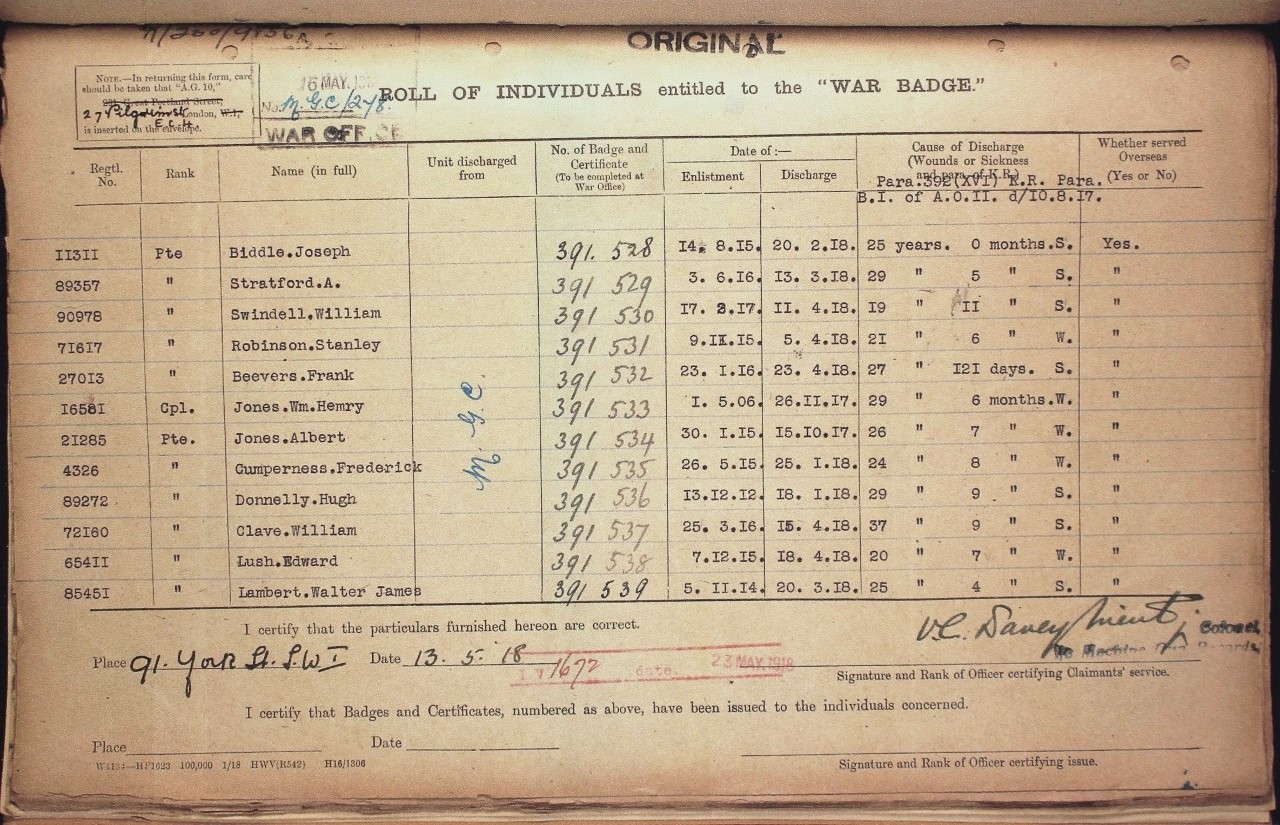 ORIGINAL
NOTE.—In returning this form, care
should be taken that "A.G. 10,"
231 Great Portland Street,
27 Pilgrim St London, W.1,
E.C.4.
is inserted on the envelope.
16 MAY. 191
No. M.G.C/278.
WAR OFFICE
ROLL OF INDIVIDUALS entitled to the "WAR BADGE."
Regtl. No. Rank Name (in full) Unit discharged from No. of Badge and Certificate (To be completed at War Office) Date of :— Enlistment Discharge Cause of Discharge (Wounds or Sickness and para. of K.R.) Whether served Overseas (Yes or No)
Para.392(XVI) K.R. Para.
B.I. of A.O.II. d/I0.8.I7.
M. G. C.
II3II Pte Biddle.Joseph 391. 528 I4. 8.I5. 20. 2.I8. 25 years. 0 months.S. Yes.
89357 " Stratford.A. 391 529 3. 6.I6. I3. 3.I8. 29 " 5 " S. "
90978 " Swindell.William 391 530 I7. 2.I7. II. 4.I8. I9 " II " S. "
7I6I7 " Robinson.Stanley 391 531 9.II.I5. 5. 4.I8. 2I " 6 " W. "
270I3 " Beevers.Frank 391 532 23. I.I6. 23. 4.I8. 27 " I2I days. S. "
I658I Cpl. Jones.Wm.Hemry 391 533 I. 5.06. 26.II.I7. 29 " 6 months.W. "
2I285 Pte. Jones.Albert 391 534 30. I.I5. I5.I0.I7. 26 " 7 " W. "
4326 " Cumperness.Frederick 391 535 26. 5.I5. 25. I.I8. 24 " 8 " W. "
89272 " Donnelly.Hugh 391 536 I3.I2.I2. I8. I.I8. 29 " 9 " S. "
72I60 " Clave.William 391 537 25. 3.I6. I5. 4.I8. 37 " 9 " S. "
654II " Lush.Edward 391 538 7.I2.I5. I8. 4.I8. 20 " 7 " W. "
8545I " Lambert.Walter James 391 539 5. II.I4. 20. 3.I8. 25 " 4 " S. "
I certify that the particulars furnished hereon are correct.
Colonel,
Place 91. York St. S.W I Date 13. 5. 18
1672 date. 23 MAY.1918
Signature and Rank of Officer certifying Claimants' service.
I certify that Badges and Certificates, numbered as above, have been issued to the individuals concerned.
Place Date
100,000 1/18 HWV(R542) H16/1306
Signature and Rank of Officer certifying issue.